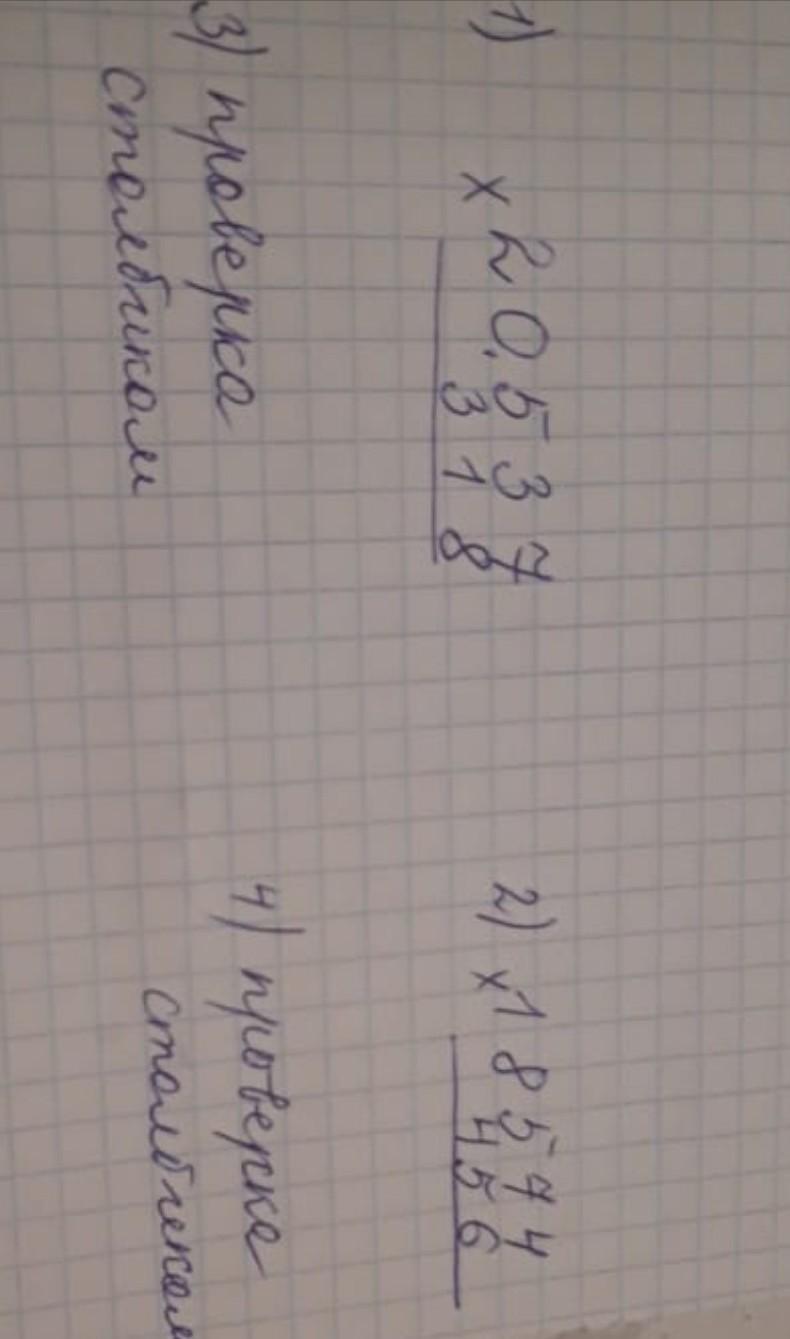 1) × 20.537
318
2) × 18574
456
3) проверка
столбиком
4) проверка
столбиком